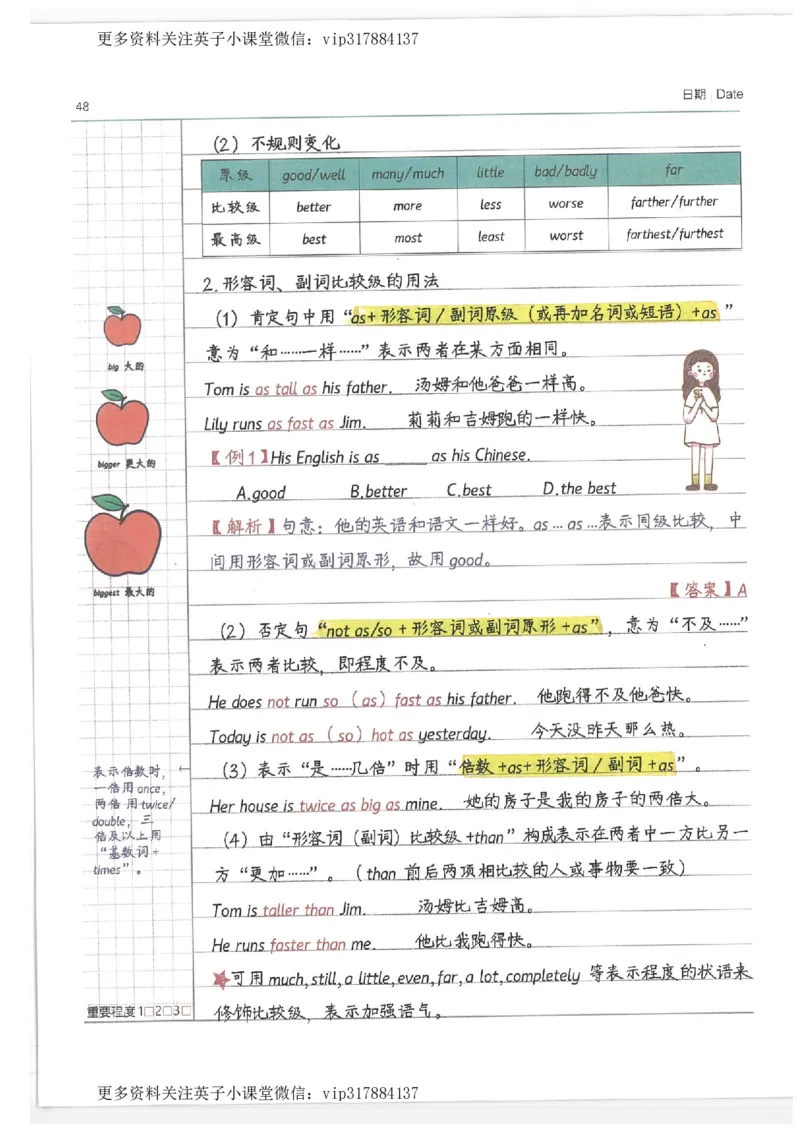 更多资料关注英子小课堂微信：vip317884137
日期 Date
48
（2）不规则变化
原级 good/well many/much little bad/badly far
比较级 better more less worse farther/further
最高级 best most least worst farthest/furthest
2.形容词、副词比较级的用法
（1）肯定句中用“as+形容词/副词原级（或再加名词或短语）+as ”
意为“和……一样……”表示两者在某方面相同。
Tom is as tall as his father. 汤姆和他爸爸一样高。
Lily runs as fast as Jim. 莉莉和吉姆跑的一样快。
【例1】His English is as ______ as his Chinese.
A.good B.better C.best D.the best
【解析】句意：他的英语和语文一样好。as … as …表示同级比较，中
间用形容词或副词原形，故用good。
【答案】A
（2）否定句“not as/so +形容词或副词原形+as”，意为“不及……”
表示两者比较，即程度不及。
He does not run so（as）fast as his father. 他跑得不及他爸快。
Today is not as（so）hot as yesterday. 今天没昨天那么热。
（3）表示“是……几倍”时用“倍数+as+形容词/副词+as”。
Her house is twice as big as mine. 她的房子是我的房子的两倍大。
（4）由“形容词（副词）比较级+than”构成表示在两者中一方比另一
方“更加……”。（than 前后两项相比较的人或事物要一致）
Tom is taller than Jim. 汤姆比吉姆高。
He runs faster than me. 他比我跑得快。
★可用much,still,a little,even,far,a lot,completely 等表示程度的状语来
修饰比较级，表示加强语气。
big 大的
bigger 更大的
biggest 最大的
表示倍数时，←
一倍用once，
两倍用twice/
double，三
倍及以上用
“基数词+
times”。
重要程度1□2□3□
更多资料关注英子小课堂微信：vip317884137